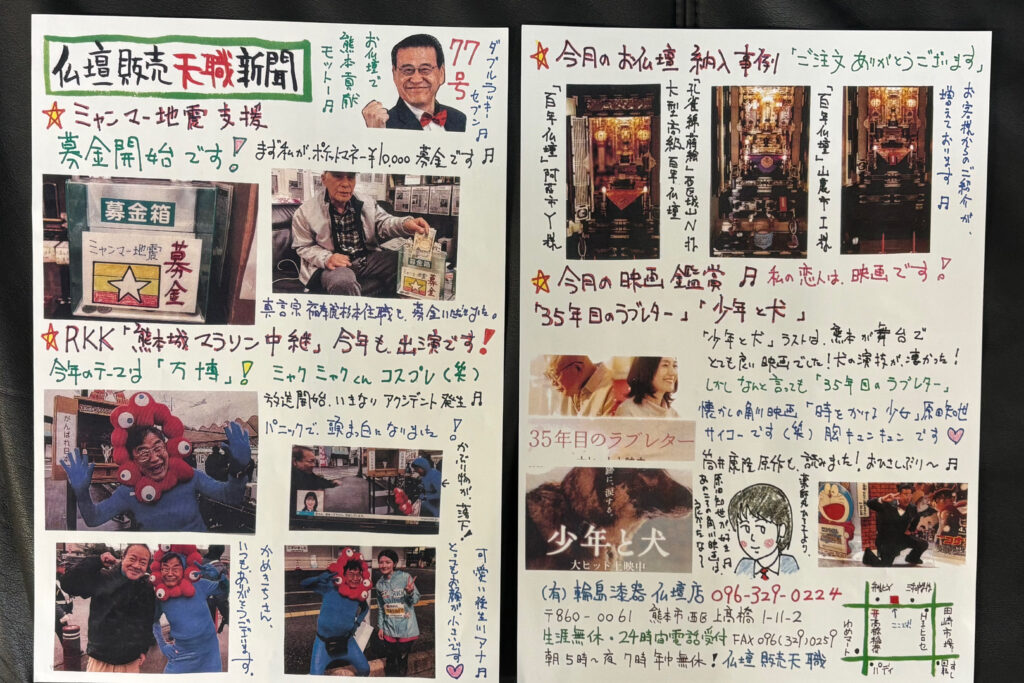 仏壇販売天職新聞
お仏壇で
熊本貢献
モットー♬
77号
ダブルラッキー
セブン♬
☆ミャンマー地震支援
募金開始です！
まず私が、ポケットマネー¥10,000募金です♬
募金箱
ミャンマー地震
募金
☆RKK「熊本城マラソン中継」今年も出演です！
今年のテーマは「万博」！
ミャクミャクくん コスプレ(笑)
放送開始、いきなりアクシデント発生♬
パニックで、頭まっ白になりました！
がんばれ日本
かぶり物が、落下！
かめきちさん、
いつもありがとうございます。
可愛い後生川アナ♬
とってもお顔が小さいです
☆今月のお仏壇 納入事例「ご注文ありがとうございます」
「百年仏壇」阿蘇市Y様
大型高級百年仏壇
「百年仏壇」山鹿市I様
お客様からのご紹介が、
増えております♬
☆今月の映画鑑賞♬ 私の恋人は、映画です！
「35年目のラブレター」「少年と犬」
「少年と犬」ラストは、熊本が舞台で
とても良い映画でした！犬の演技が、凄かった！
しかしなんと言っても「35年目のラブレター」
懐かしの角川映画「時をかける少女」原田知世
サイコーです(笑)胸キュンキュンです
筒井康隆原作も、読みました！おひさしぶり〜♬
35年目のラブレター
少年と犬
大ヒット上映中
薬師丸ひろ子より、
原田知世が好き♬
あのころの角川映画は、
(有)輪島漆器仏壇店 096-329-0224
〒860-0061 熊本市西区上高橋1-11-2
生涯無休・24時間電話受付 FAX096(329)0259
朝5時〜夜7時 年中無休！仏壇販売天職
ここ！
田崎市場